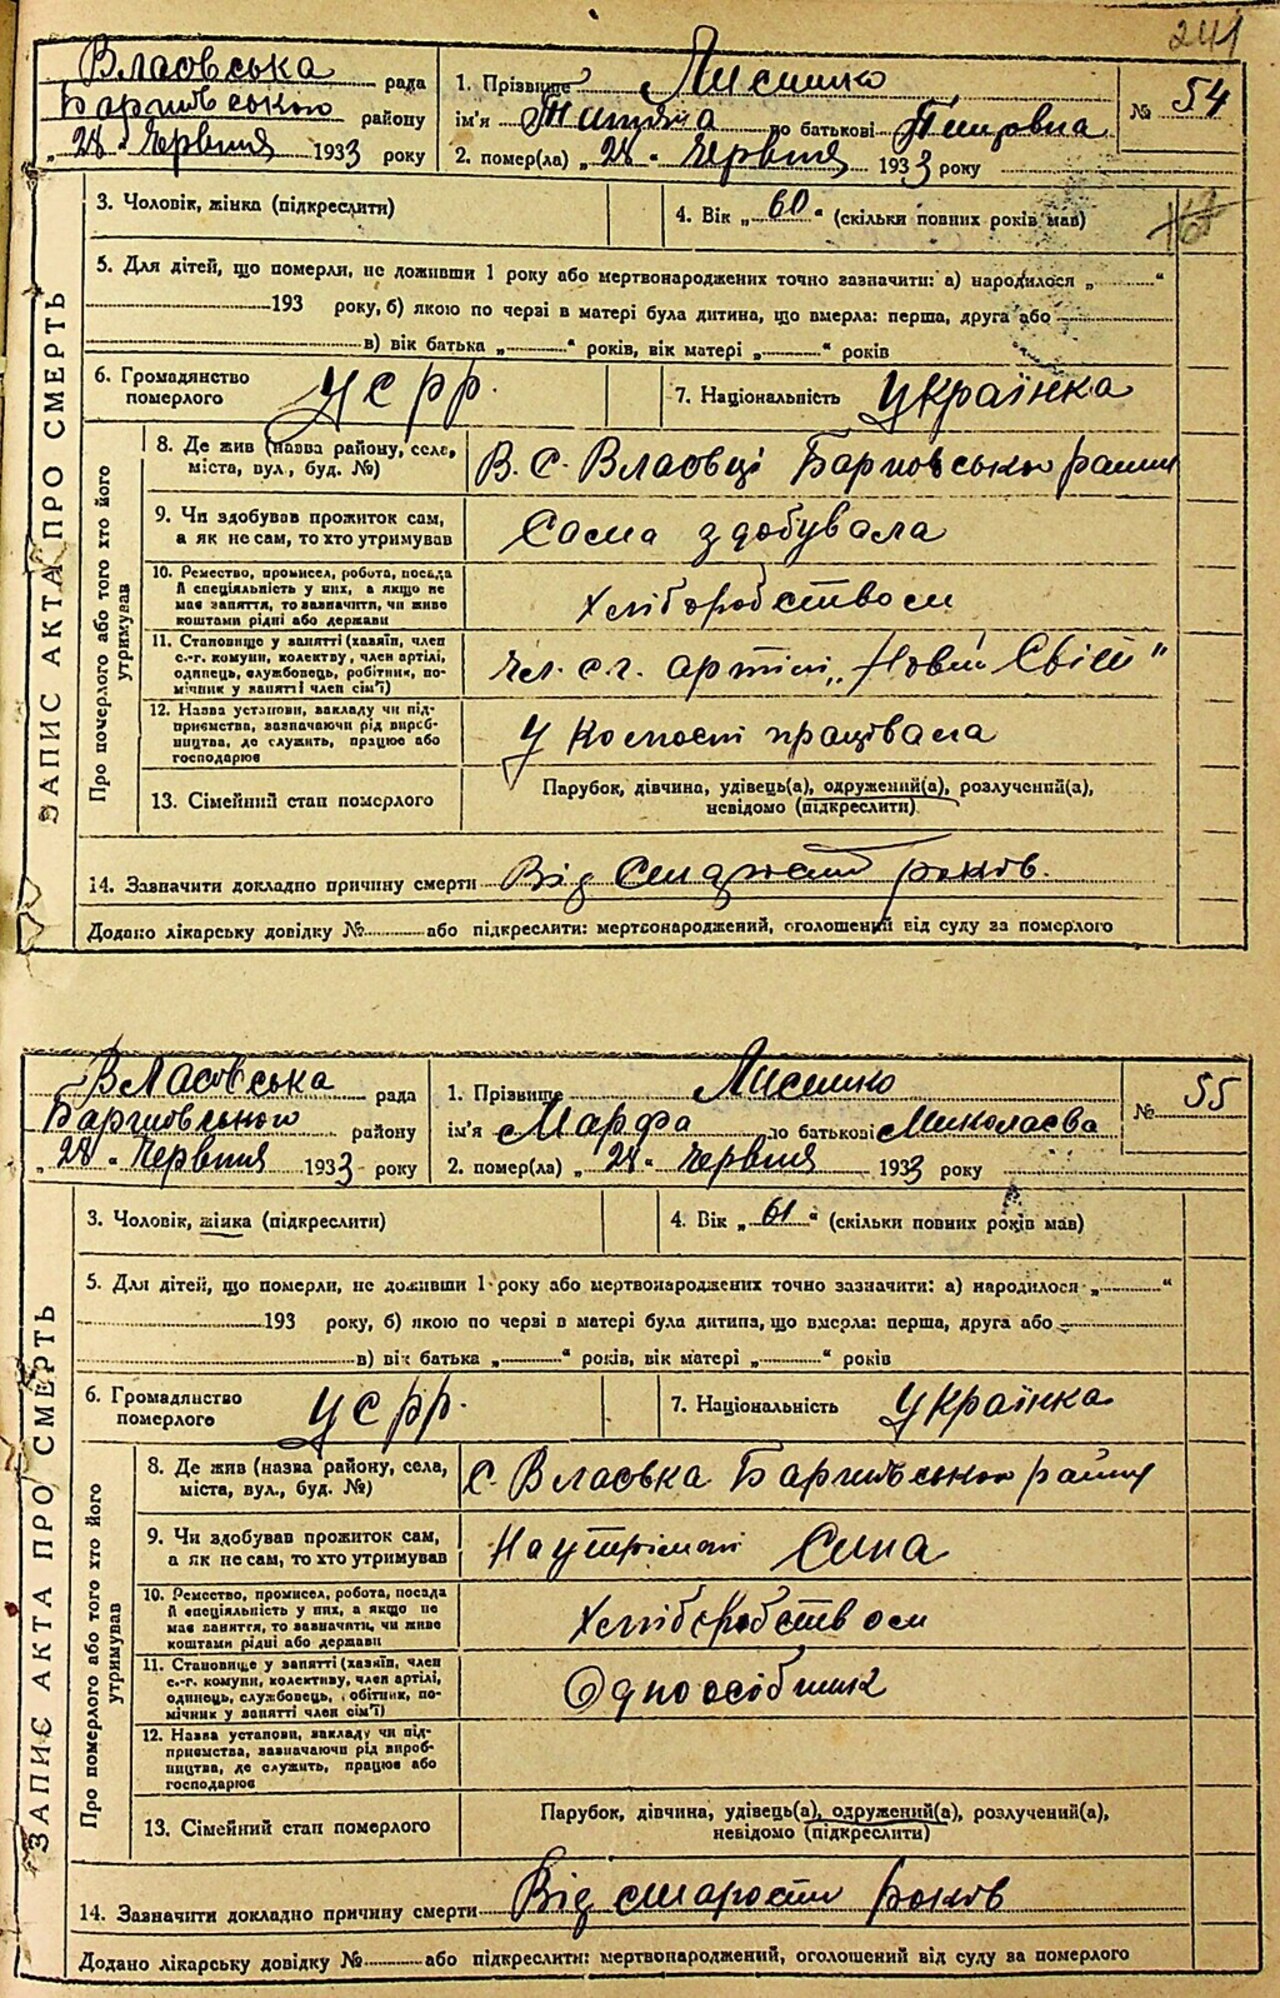 241
Власовська рада
Баришівського району
„ 28 “ Червня 1933 року
1. Прізвище
ім'я по батькові Петровна
2. помер(ла) „ 28 “ Червня 1933 року
№ 54
3. Чоловік, жінка (підкреслити)
4. Вік „ 60 “ (скільки повних років мав)
5. Для дітей, що померли, не доживши 1 року або мертвонароджених точно зазначити: а) народилося „ “
193 року, б) якою по черзі в матері була дитина, що вмерла: перша, друга або
в) вік батька „ “ років, вік матері „ “ років
6. Громадянство
померлого
УСРР.
7. Національність Українка
ЗАПИС АКТА ПРО СМЕРТЬ
Про померлого або того хто його
утримував
8. Де жив (назва району, села,
міста, вул., буд. №)
В. С. Власовці район
9. Чи здобував прожиток сам,
а як не сам, то хто утримував
Сама здобувала
10. Ремество, промисел, робота, посада
й спеціяльність у них, а якщо не
має заняття, то зазначити, чи живе
коштами рідні або держави
Хліборобством
11. Становище у занятті (хазяїн, член
с.-г. комуни, колективу, член артілі,
одинець, службовець, робітник, по-
мічник у занятті член сім'ї)
чл. с.г. артілі „Новий Світ"
12. Назва установи, закладу чи під-
приємства, зазначаючи рід вироб-
ництва, де служить, працює або
господарює
У працівала
13. Сімейний стан померлого
Парубок, дівчина, удівець(а), одружений(а), розлучений(а),
невідомо (підкреслити)
14. Зазначити докладно причину смерти Від старости років.
Додано лікарську довідку № або підкреслити: мертвонароджений, оголошений від суду за померлого
Власовська рада
району
„ 28 “ Червня 1933 року
1. Прізвище
ім'я Марфа по батькові Миколаєва
2. помер(ла) „ 28 “ Червня 1933 року
№ 55
3. Чоловік, жінка (підкреслити)
4. Вік „ 61 “ (скільки повних років мав)
5. Для дітей, що померли, не доживши 1 року або мертвонароджених точно зазначити: а) народилося „ “
193 року, б) якою по черзі в матері була дитина, що вмерла: перша, друга або
в) вік батька „ “ років, вік матері „ “ років
6. Громадянство
померлого
УСРР.
7. Національність Українка
ЗАПИС АКТА ПРО СМЕРТЬ
Про померлого або того хто його
утримував
8. Де жив (назва району, села,
міста, вул., буд. №)
С. Власовка
9. Чи здобував прожиток сам,
а як не сам, то хто утримував
На утрімані Сина
10. Ремество, промисел, робота, посада
й спеціяльність у них, а якщо не
має заняття, то зазначити, чи живе
коштами рідні або держави
Хліборобством
11. Становище у занятті (хазяїн, член
с.-г. комуни, колективу, член артілі,
одинець, службовець, робітник, по-
мічник у занятті член сім'ї)
Одноосібник
12. Назва установи, закладу чи під-
приємства, зазначаючи рід вироб-
ництва, де служить, працює або
господарює
13. Сімейний стан померлого
Парубок, дівчина, удівець(а), одружений(а), розлучений(а),
невідомо (підкреслити)
14. Зазначити докладно причину смерти Від старости років
Додано лікарську довідку № або підкреслити: мертвонароджений, оголошений від суду за померлого